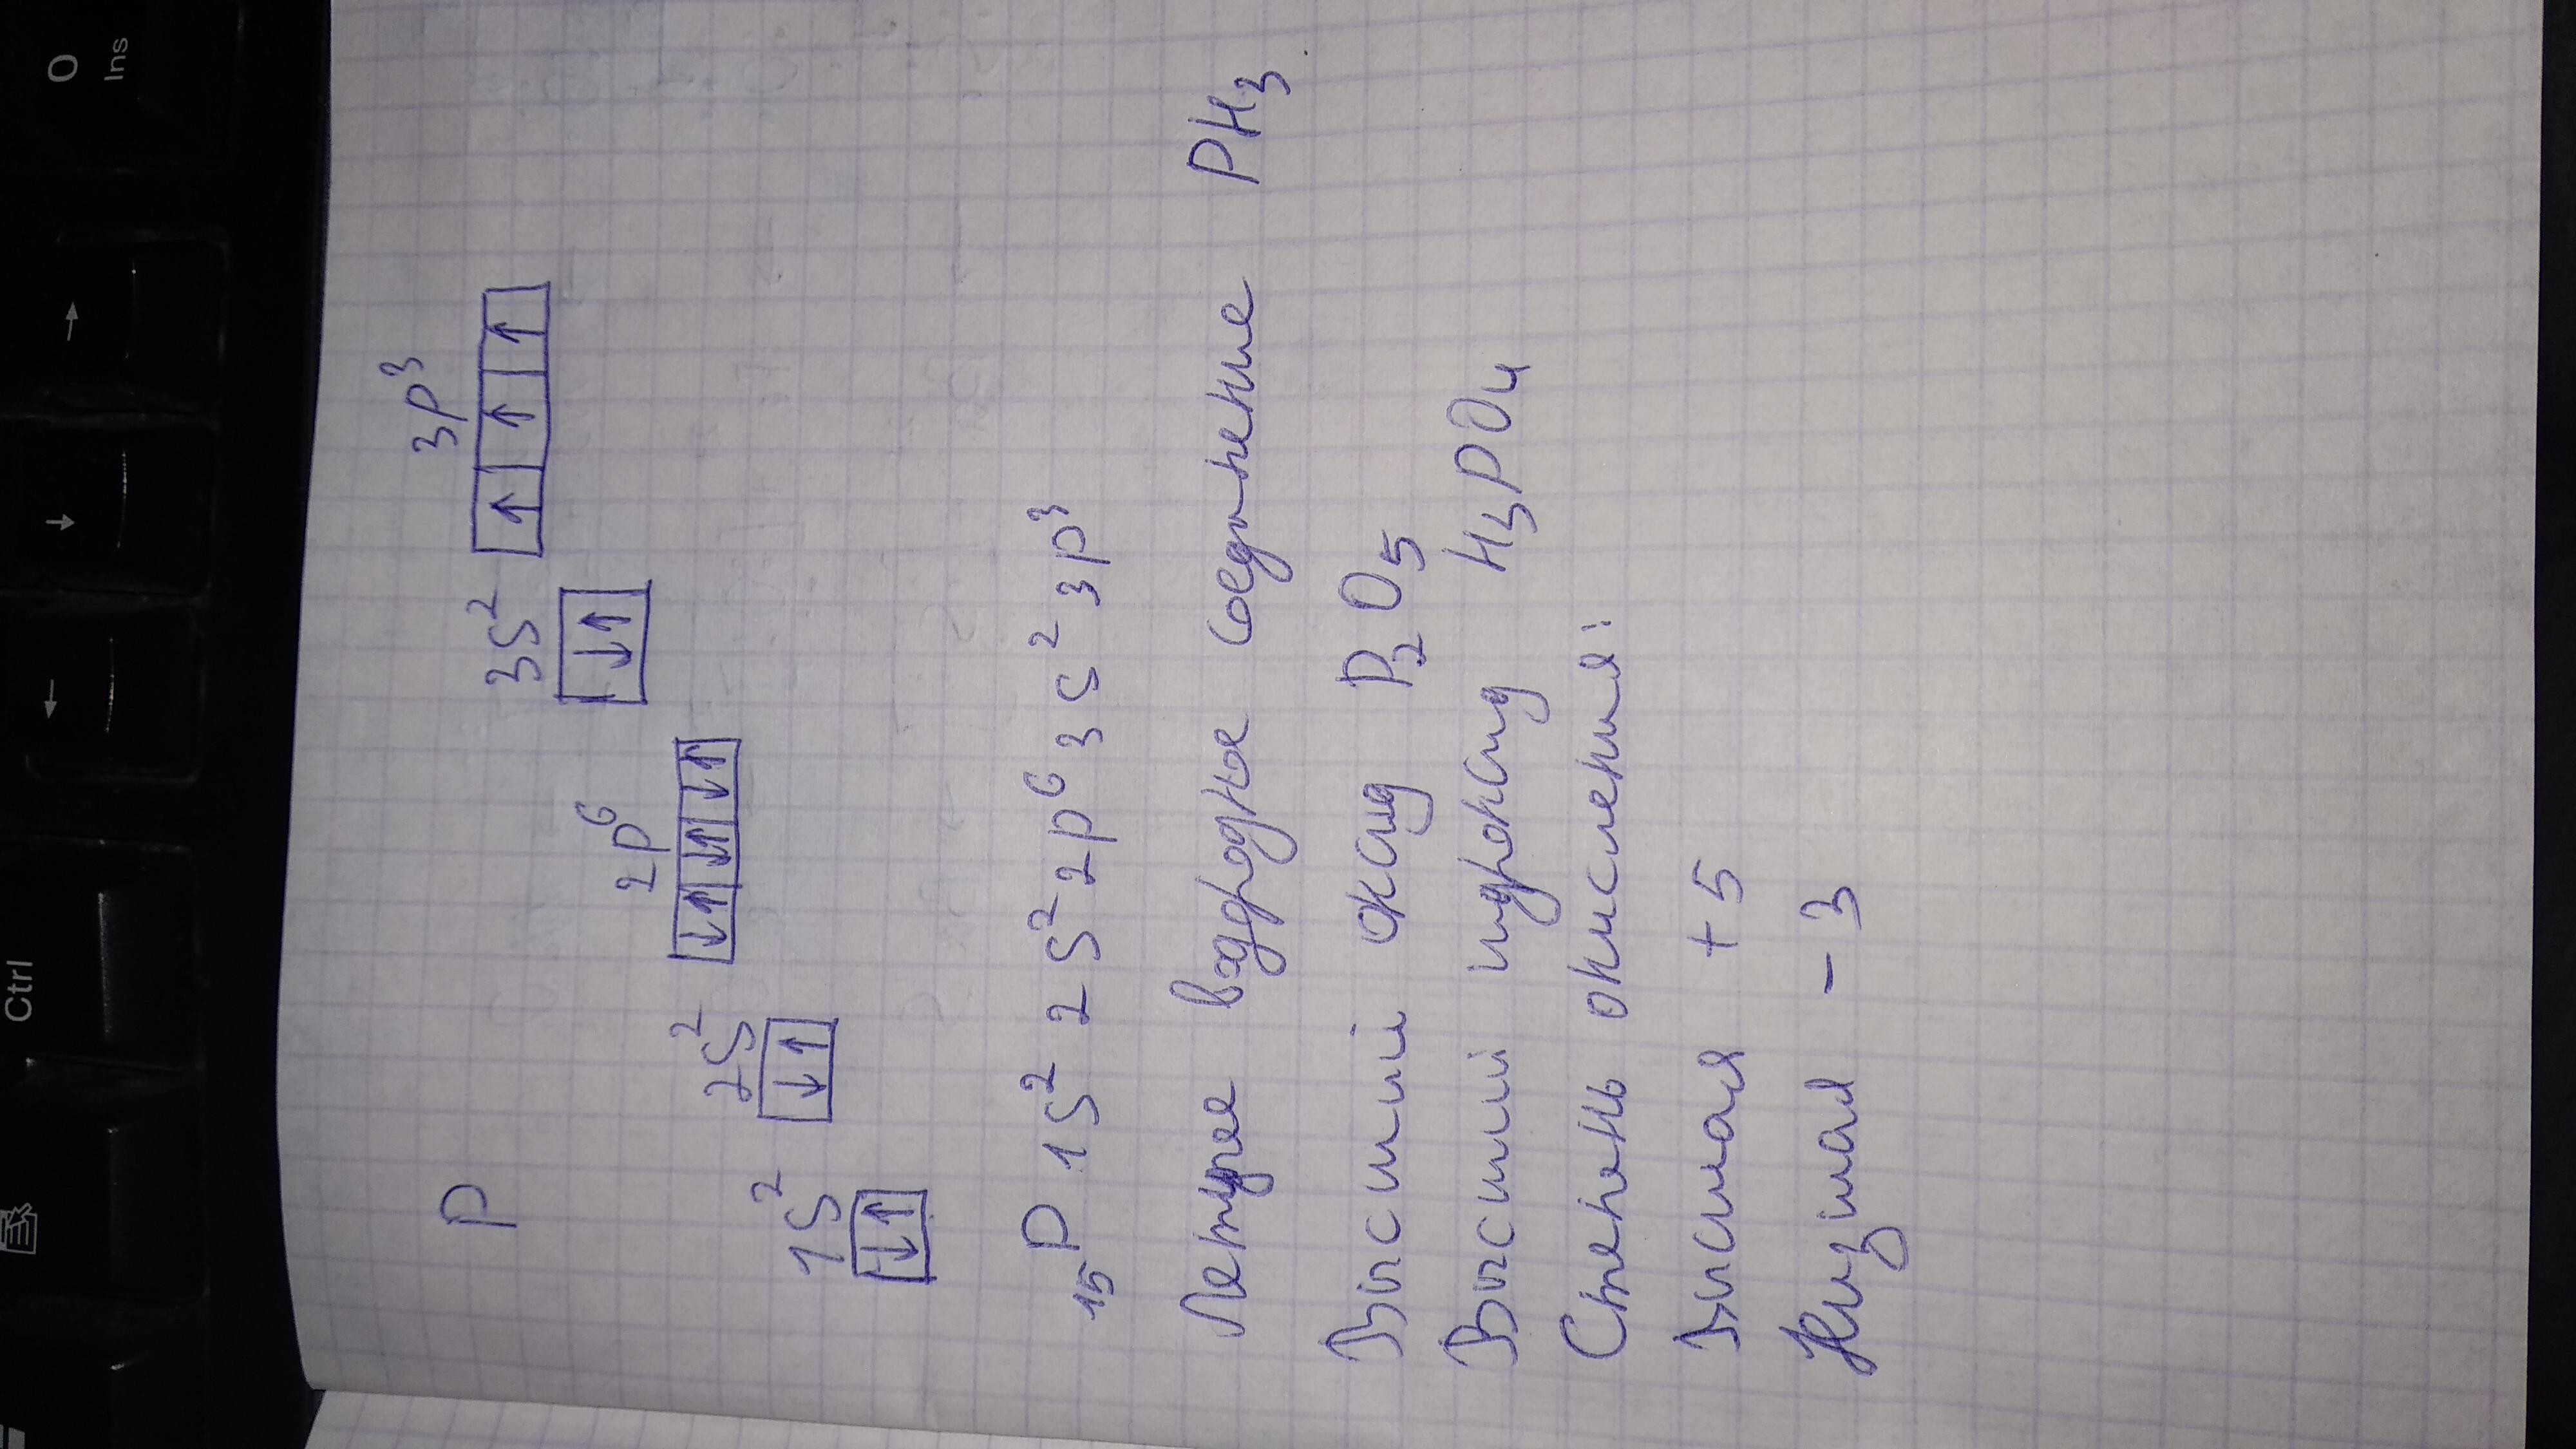 P
3p³
3S²
2p⁶
2S²
1S²
₁₅P 1S² 2S² 2p⁶ 3S² 3p³
Летучее водородное соединение PH₃
Высший оксид P₂O₅
Высший гидроксид H₃PO₄
Степень окисления:
Высшая +5
Низшая -3
Ctrl
0
Ins